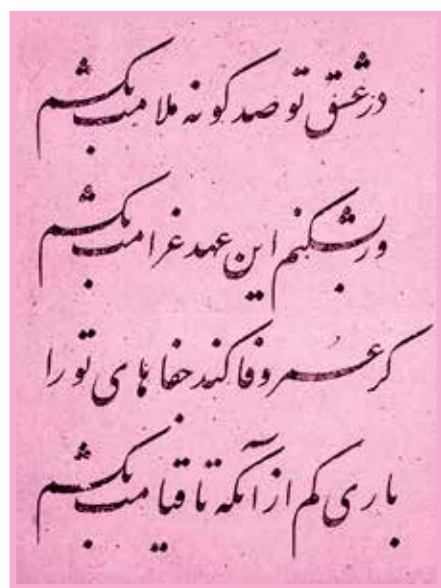 در عشق تو صد گونه ملامت بکشم
ور بشکنم این عهد غرامت بکشم
گر عمر وفا کند جفاهای تو را
باری کم از آنکه تا قیامت بکشم